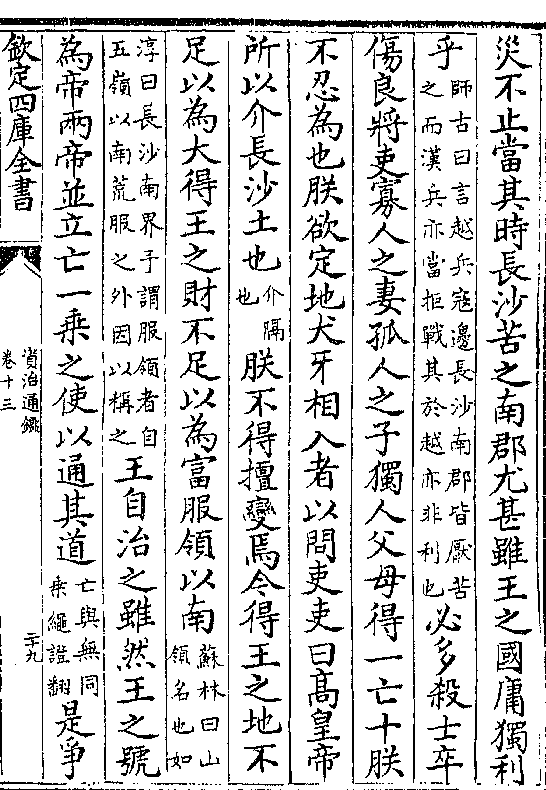 災不止當其時長沙苦之南郡尤甚雖王之國庸獨利
乎師古曰言越兵寇邊長沙南郡皆厭苦之而漢兵亦當拒戰其於越亦非利也必多殺士卒
傷良將吏寡人之妻孤人之子獨人父母得一亡十朕
不忍為也朕欲定地犬牙相入者以問吏吏曰高皇帝
所以介長沙土也介隔也朕不得擅變焉今得王之地不
足以為大得王之財不足以為富服領以南蘇林曰山領名也如
淳曰長沙南界予謂服領者自五嶺以南荒服之外因以稱之王自治之雖然王之號
為帝兩帝並立亡一乘之使以通其道亡與無同乘繩證翻是爭
欽定四庫全書
資治通鑑
卷十三
二十九